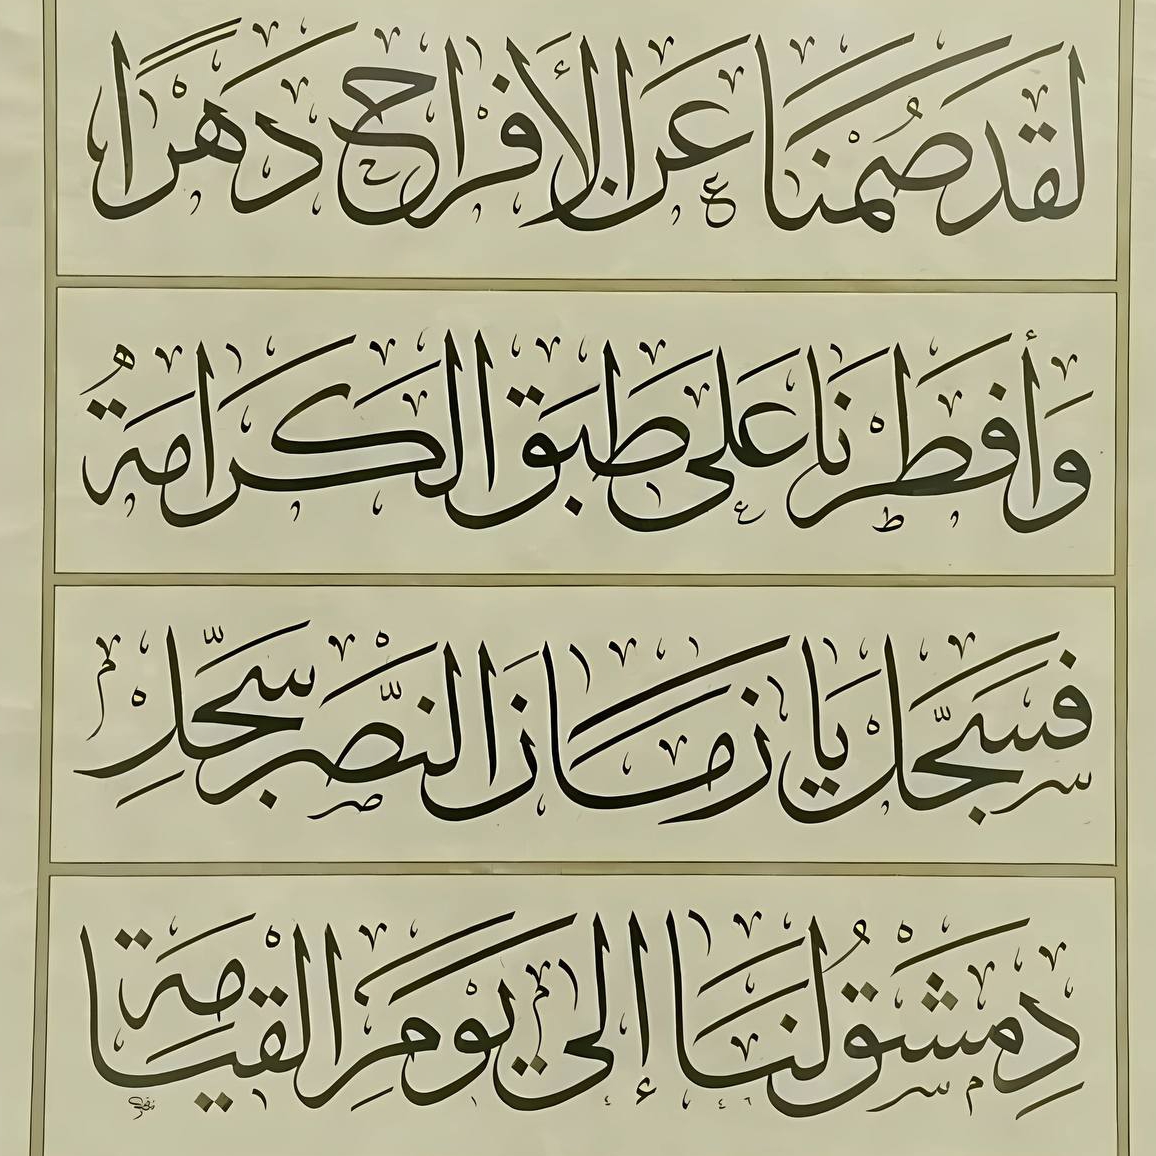 لَقَدْ صُمْنَا عَنِ الأَفْرَاحِ دَهْرًا
وَأَفْطَرْنَا عَلَى طَبَقِ الكَرَامَةْ
فَسَجِّلْ يَا زَمَانَ النَّصْرِ سَجِّلْ
دِمَشْقُ لَنَا إِلَى يَوْمِ القِيَامَةْ